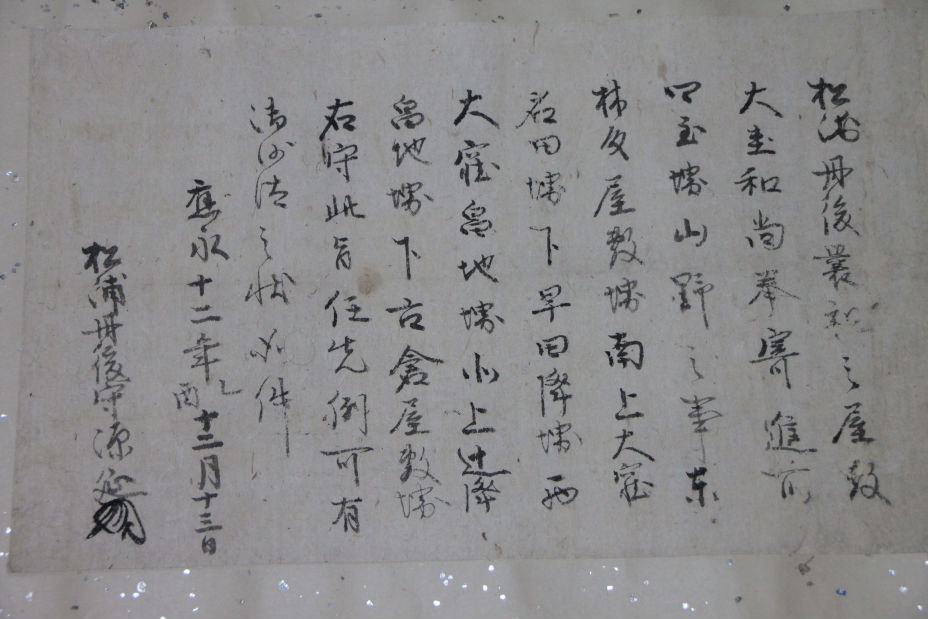 松浦丹後曩祖之屋敷
大圭和尚奉寄進所
四至堺山野之事東
林友屋敷堺南上大窪
名田堺下早田降堺西
大窪畠地堺北上辻降
畠地堺下古倉屋敷堺
右守此旨任先例可有
御沙汰之状如件
應永十二年乙酉十二月十三日
松浦丹後守源延